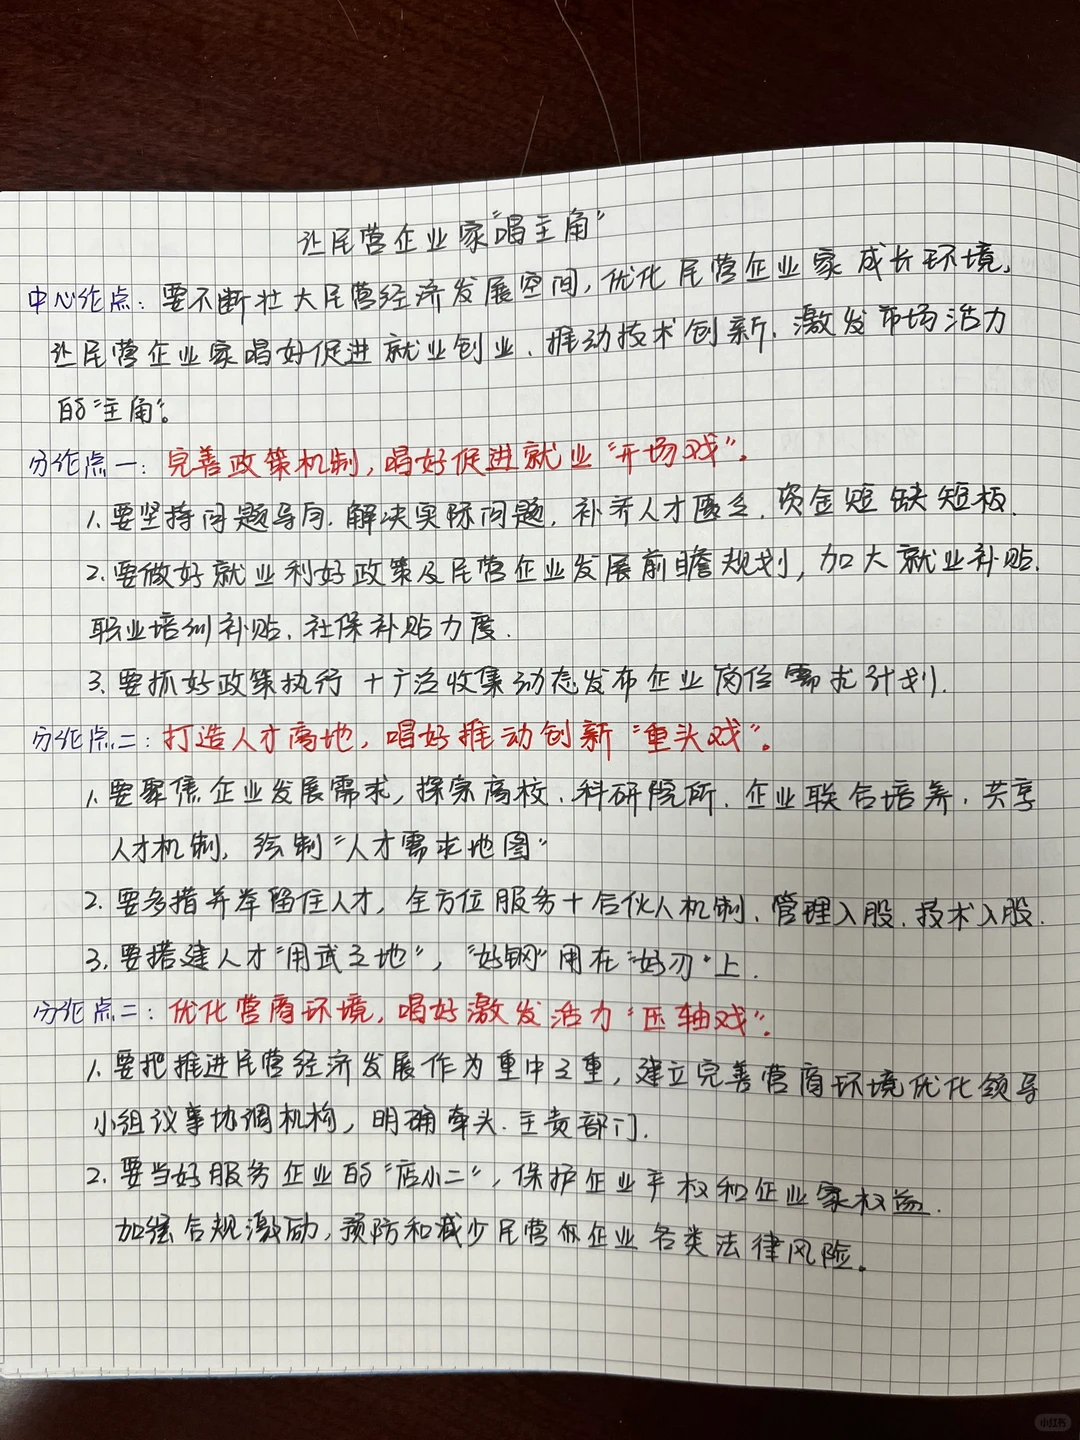 让民营企业家“唱主角”
中心论点：要不断壮大民营经济发展空间，优化民营企业家成长环境，
让民营企业家唱好促进就业创业、推动技术创新、激发市场活力
的“主角”。
分论点一：完善政策机制，唱好促进就业“开场戏”。
1、要坚持问题导向，解决实际问题，补齐人才匮乏、资金短缺短板．
2、要做好就业利好政策及民营企业发展前瞻规划，加大就业补贴、
职业培训补贴、社保补贴力度．
3、要抓好政策执行＋广泛收集动态发布企业岗位需求计划．
分论点二：打造人才高地，唱好推动创新“重头戏”。
1、要聚焦企业发展需求，探索高校、科研院所、企业联合培养、共享
人才机制，绘制“人才需求地图”
2、要多措并举留住人才，全方位服务＋合伙人机制、管理入股、技术入股．
3、要搭建人才“用武之地”，“好钢”用在“好刃”上．
分论点二：优化营商环境，唱好激发活力“压轴戏”。
1、要把推进民营经济发展作为重中之重，建立完善营商环境优化领导
小组议事协调机构，明确牵头、主责部门．
2、要当好服务企业的“店小二”，保护企业产权和企业家权益．
加强合规激励，预防和减少民营企业各类法律风险。
小红书